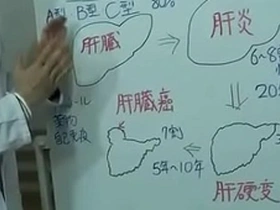 A型 B型 C型 80%
肝臓
肝炎
6~8
肝臓癌
7割
5年~10年
肝硬変